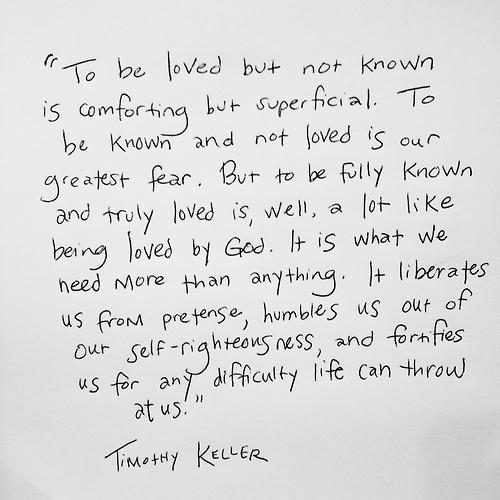 "To be loved but not known
is comforting but superficial. To
be known and not loved is our
greatest fear. But to be fully known
and truly loved is, well, a lot like
being loved by God. It is what we
need more than anything. It liberates
us from pretense, humbles us out of
our self-righteousness, and fortifies
us for any difficulty life can throw
at us."
Timothy Keller